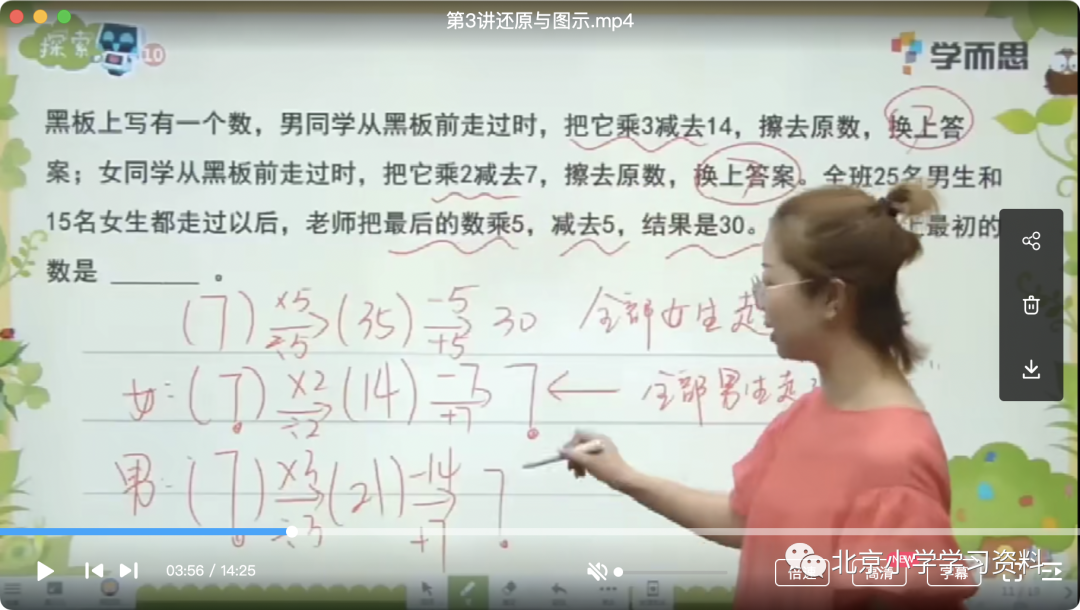 第3讲还原与图示.mp4
探索
10
学而思
黑板上写有一个数，男同学从黑板前走过时，把它乘3减去14，擦去原数，换上答
案；女同学从黑板前走过时，把它乘2减去7，擦去原数，换上答案。全班25名男生和
15名女生都走过以后，老师把最后的数乘5，减去5，结果是30。
上最初的
数是 ______ 。
(7) ×5 ÷5 (35) −5 +5 30 全部女生走
女：(7) ×2 ÷2 (14) −7 +7 7 ← 全部男生走
男：(7) ×3 ÷3 (21) −14 +7 7
03:56 / 14:25
倍速
高清
NEW
字幕
北京小学学习资料